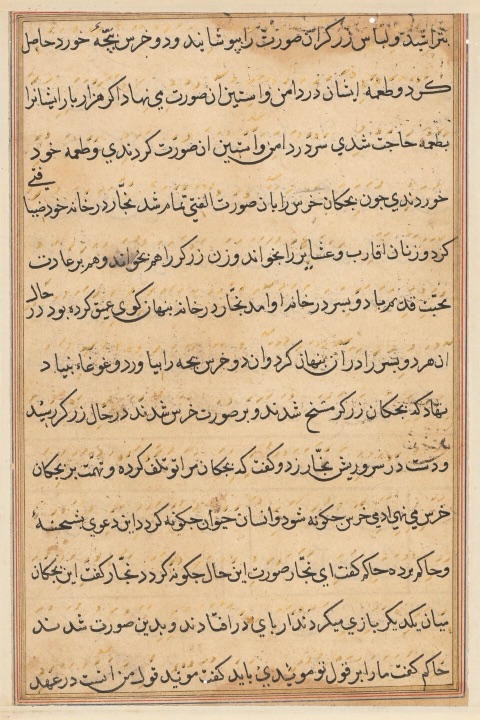 بتراشید و لباس زرگر ان صورت را بپوشانید و دو خرس بچهٔ خورد حاصل
کرد و طعمه ایشان در دامن و استین ان صورت می نهاد اکر هزار بار ایشانرا
بطعمه حاجت شدی سر در دامن و استین ان صورت کردندی و طعمه خود
خوردندی جون بجکان خرس را بان صورت الفتی تمام شد نجار در خانه خود ضیا
فتی
کرد و زنان اقارب و عشایر را بخواند و زن زرکر را هم بخواند و هم بر عادت
محبت قدیم با دو بسر در خانه او امد نجار در خانه بنهان کوی عمیق کرده بود در
حال
ان هر دو بسر را در ان بنهان کرد و ان دو خرس بجه را بیاورد و غوغاء بنیاد
نهاد که بجکان زرکر مسخ شدند و بر صورت خرس شدند در حال زرکر رسید
و دست در سر و ریش نجار زد و کفت که بجکان مرا تو تلف کرده و تهمت بر بجکان
خرس می نهی ادمی خرس جکونه شود و انسان حیوان جکونه کردد این دعوی بشحنهٔ
و حاکم برده حاکم کفت ای نجار صورت این حال جکونه کردد نجار کفت این بجکان
میان یکدیکر بازی میکردند از بای در افتادند و بدین صورت شدند
حاکم کفت ما را بر قول تو مویدی باید کفت موید قول من انست در عهد